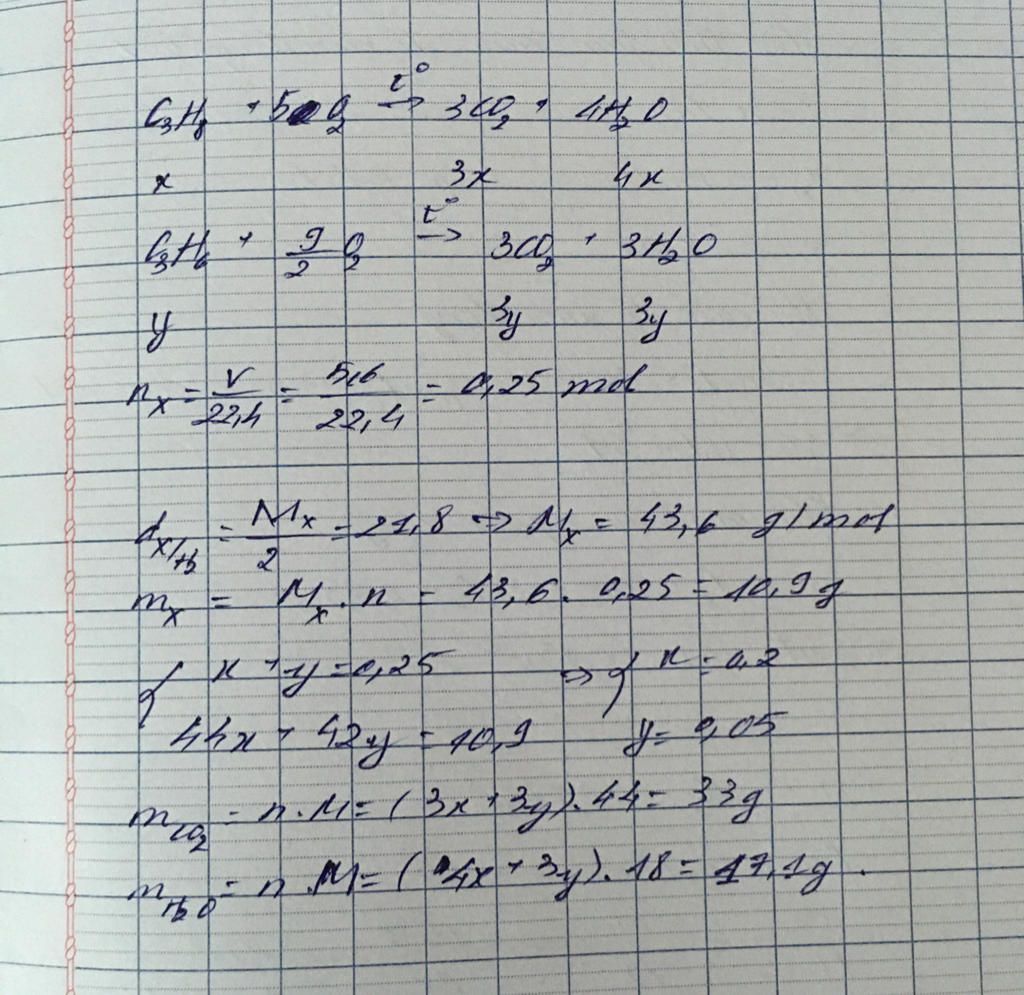 C₃H₈ + 5O₂ →t° 3CO₂ + 4H₂O
x 3x 4x
C₃H₆ + 9/2 O₂ →t° 3CO₂ + 3H₂O
y 3y 3y
n_X = V/22,4 = 5,6/22,4 = 0,25 mol
d_X/H₂ = M_X/2 = 21,8 → M_X = 43,6 g/mol
m_X = M_X . n = 43,6 . 0,25 = 10,9g
{ x + y = 0,25 → { x = 0,2
44x + 42y = 10,9 y = 0,05
m_CO₂ = n . M = (3x + 3y) . 44 = 33g
m_H₂O = n . M = (4x + 3y) . 18 = 17,1g .